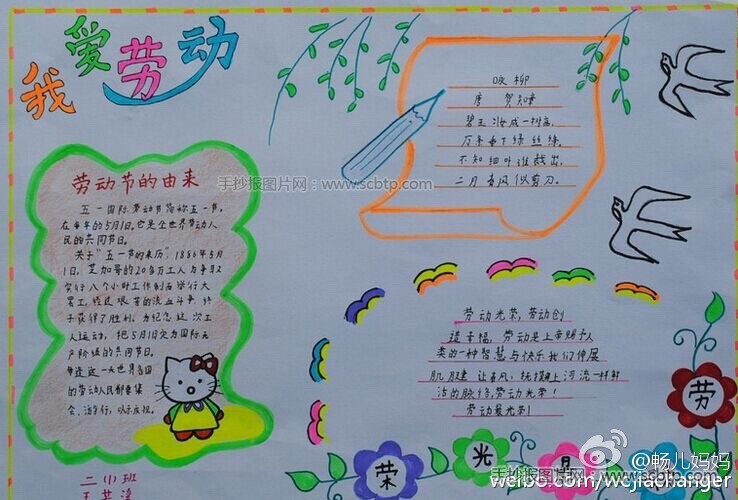 我爱劳动
劳动节的由来
五一国际劳动节简称五一节,
在每年的5月1日。它是全世界劳动人
民的共同节日。
关于"五一节的来历",1886年5月
1日,芝加哥的20多万工人为争取
实行八个小时工作制而举行大
罢工,经过艰苦的流血斗争,终
于获得了胜利。为纪念这次工
人运动,把5月1日定为国际无
产阶级的共同节日。
每逢这一天世界各国
的劳动人民都要集
会、游行,以示庆祝。
二(1)班
咏柳
唐 贺知章
碧玉妆成一树高,
万条垂下绿丝绦。
不知细叶谁裁出,
二月春风似剪刀。
手抄报图片网:www.scbtp.com
劳动光荣,劳动创
造幸福,劳动是上帝赐予人
类的一种智慧与快乐我们伸展
肌腱 让春风,抚摸上河流一样鲜
活的脉络,劳动光荣!
劳动最光荣!
劳
荣
光
手抄报图片网:www.scbtp.com
@畅儿妈妈
weibo.com/wcjiachanger